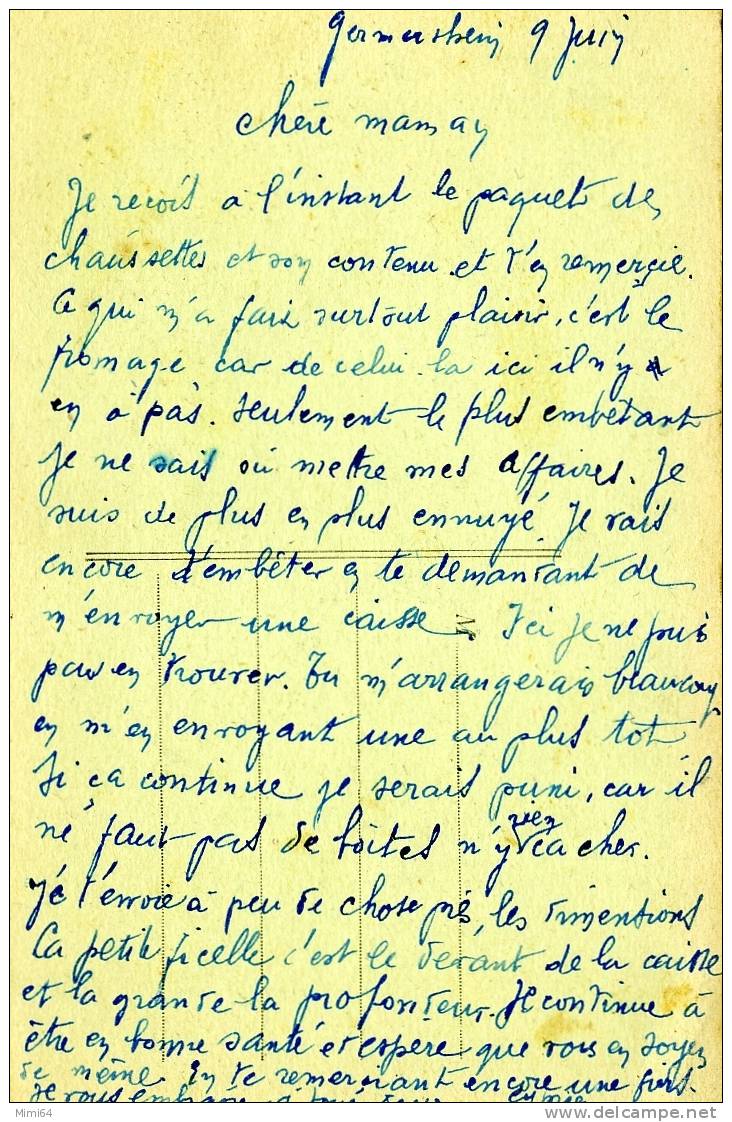 Germersheim 9 Juin
chère maman
Je reçois a l'instant le paquet de
chaüssettes et son contenu et t'en remerçie.
Ce qui m'a fait surtout plaisir, c'est le
fromage car de celui la ici il n'y
en a pas. seulement le plus embêtant
je ne sais où mettre mes affaires. Je
suis de plus en plus ennuyé. Je vais
encore t'embêter en te demandant de
m'envoyer une caisse. Ici je ne puis
pas en trouver. Tu m'arrangerais beaucoup
en m'en envoyant une au plus tot
Si ça continue je serais puni, car il
ne faut pas de boites n'y rien cacher.
Je t'envoie à peu de chose près, les dimentions
la petite ficelle c'est le devant de la caisse
et la grande la profondeur. Je continue à
être en bonne santé et espère que vous en soyez
de même. En te remerciant encore une fois.
Je vous embrasse
Mimi64
delcampe.net